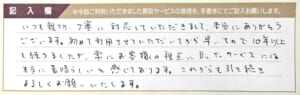 記入欄 ※今回ご利用いただきました買取サービスの感想を、手書きにてご記入お願いします。
いつも親切、丁寧に対応していただきまして、本当にありがとう
ございます。初めて利用させていただいてから早いもので10年以上
も経ちましたが、常にお客様の視点に立ったサービスには
本当に素晴らしいと感じております。これからも引き続き
よろしくお願いいたします。